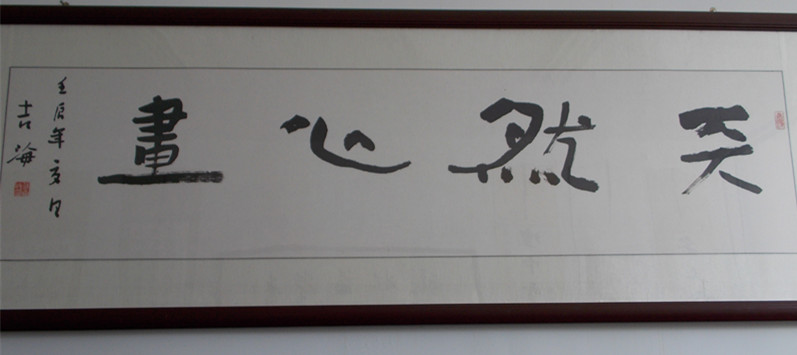 天然心畫
壬辰年亥月
吉海